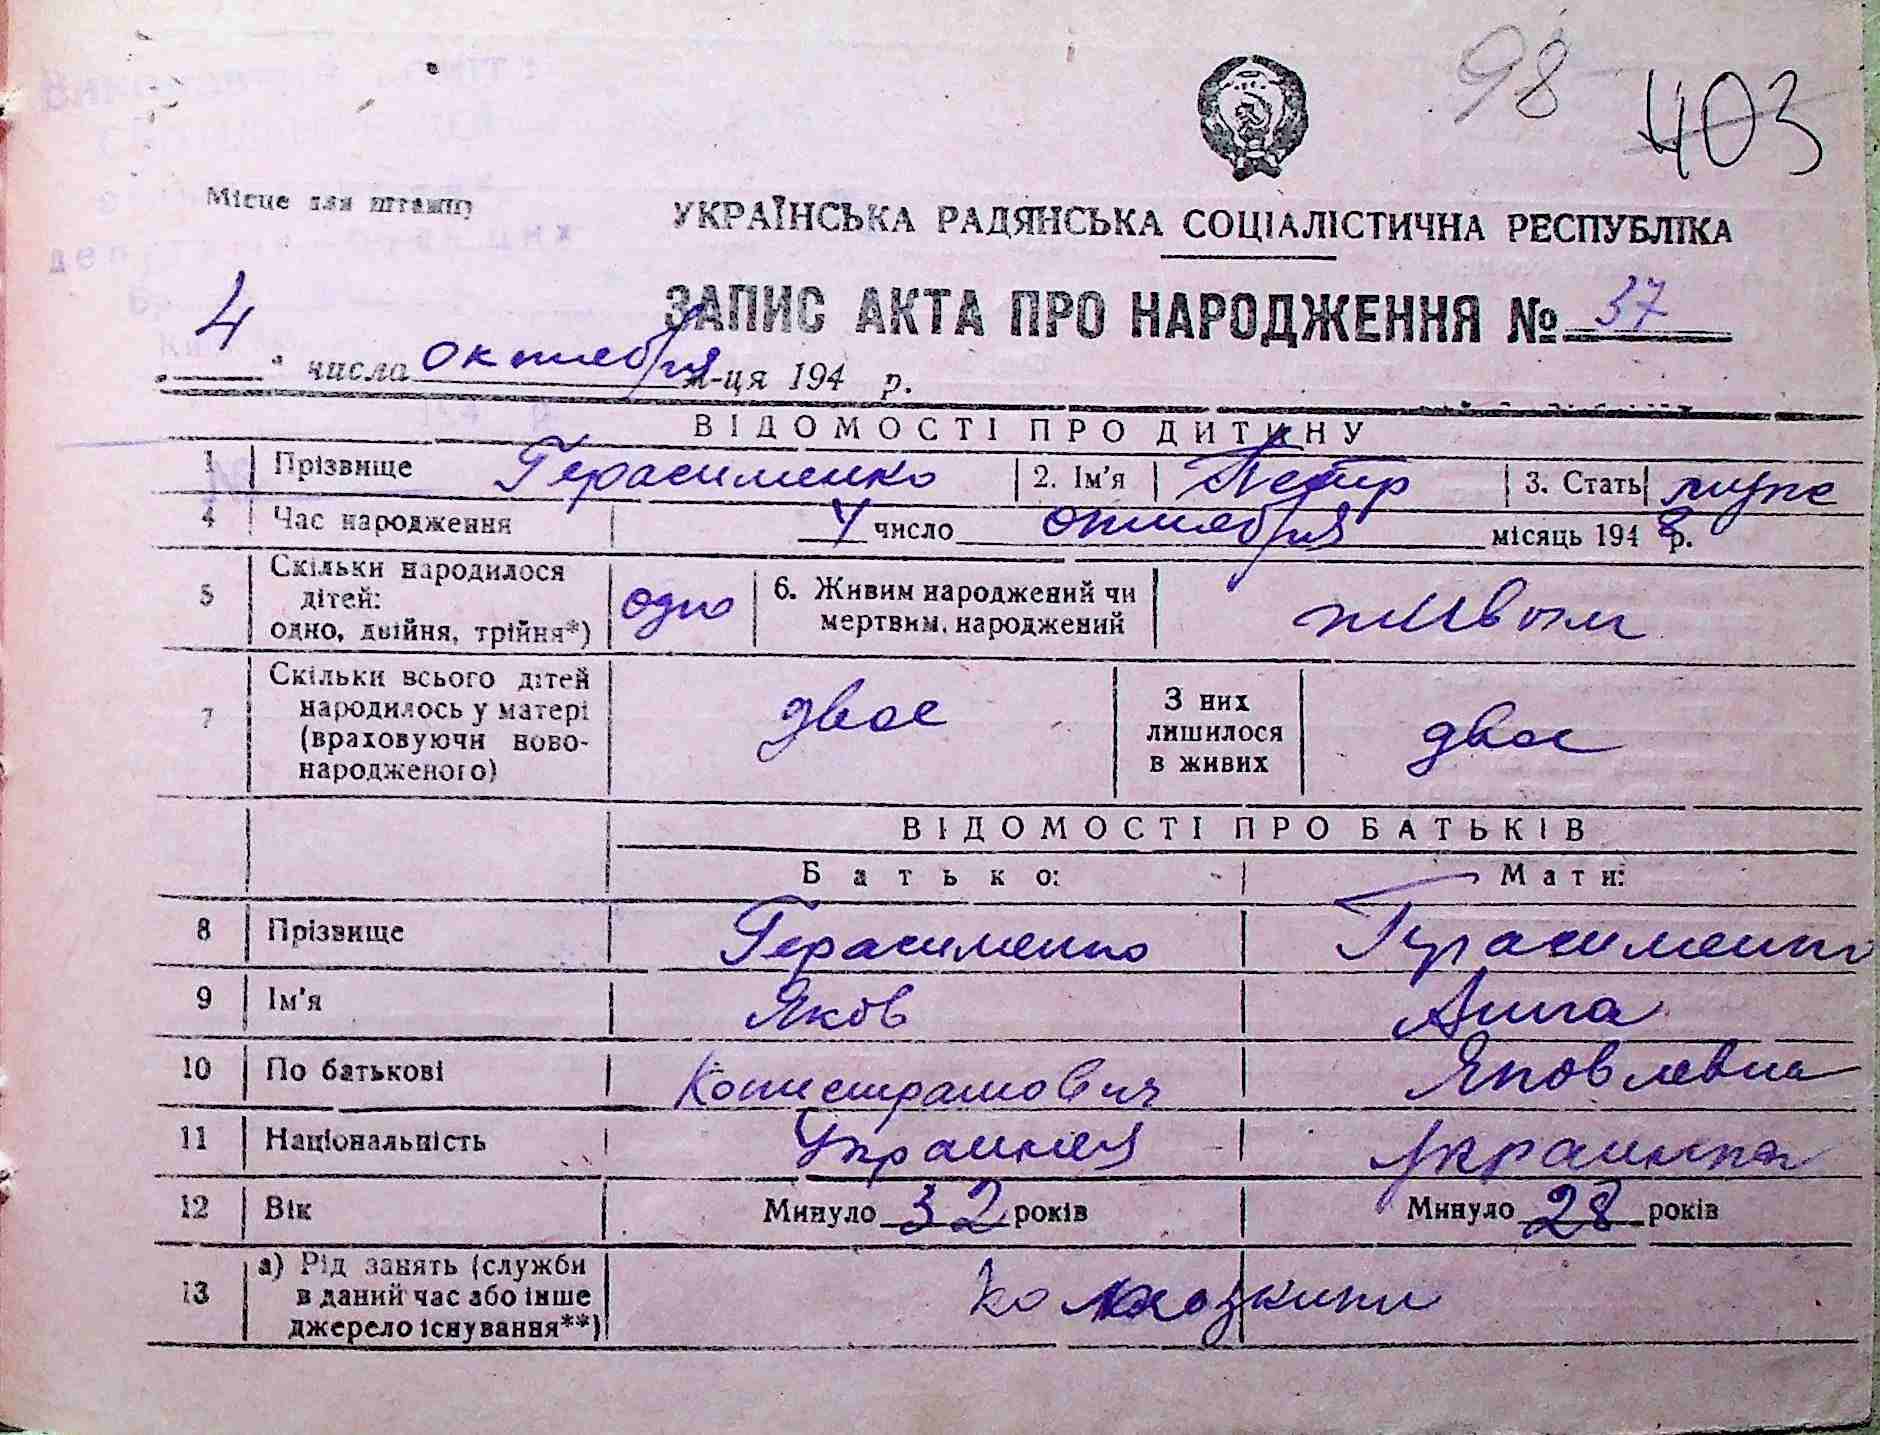 98 403
Місце для штампу
УКРАЇНСЬКА РАДЯНСЬКА СОЦІАЛІСТИЧНА РЕСПУБЛІКА
ЗАПИС АКТА ПРО НАРОДЖЕННЯ № 37
4 числа октября м-ця 194 р.
ВІДОМОСТІ ПРО ДИТИНУ
1 Прізвище Герасименко 2. Ім'я Петр 3. Стать муже
4 Час народження 4 число октября місяць 1948 р.
5 Скільки народилося дітей: одно, двійня, трійня*) одно 6. Живим народжений чи мертвим народжений живым
7 Скільки всього дітей народилось у матері (враховуючи ново-народженого) двое З них лишилося в живих двое
ВІДОМОСТІ ПРО БАТЬКІВ
Батько: Мати:
8 Прізвище Герасименко Герасименко
9 Ім'я Яков Анна
10 По батькові Яковлевна
11 Національність украинка
12 Вік Минуло 32 років Минуло 28 років
13 а) Рід занять (служби в даний час або інше джерело існування**) колхозники